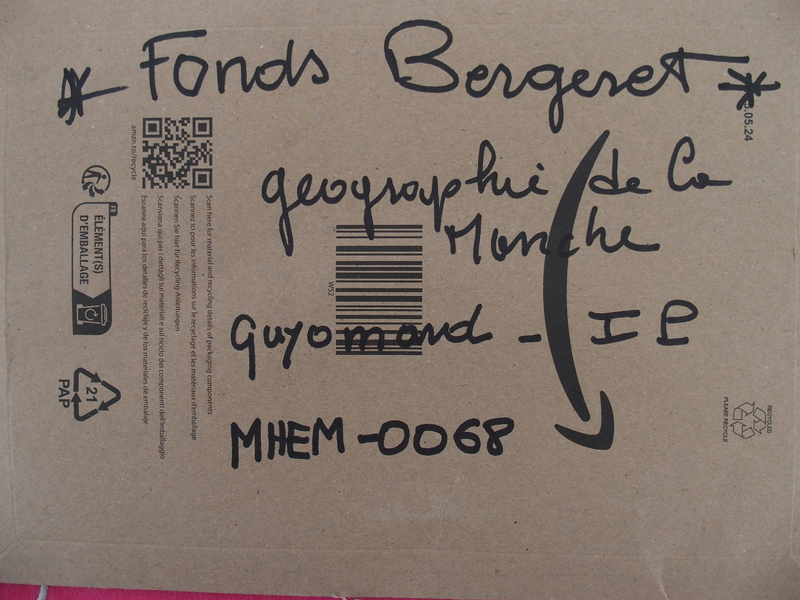 * Fonds Bergeret *
geographie de la
Manche
Guyomard - IP
MHEM-0068
5.05.24
amzn.to/recycle
Scan here for material and recycling details of packaging components
Scannez ici pour les informations sur le recyclage et les matériaux d'emballage
Scannen Sie hier für Recycling-Anleitungen
Scansiona qui per i dettagli sui materiali e sul riciclo dei componenti dell'imballaggio
Escanea aquí para los detalles de reciclaje y de los materiales de embalaje
FR
ÉLÉMENT(S)
D'EMBALLAGE
21
PAP
WS2
RECYCLED
PLEASE RECYCLE